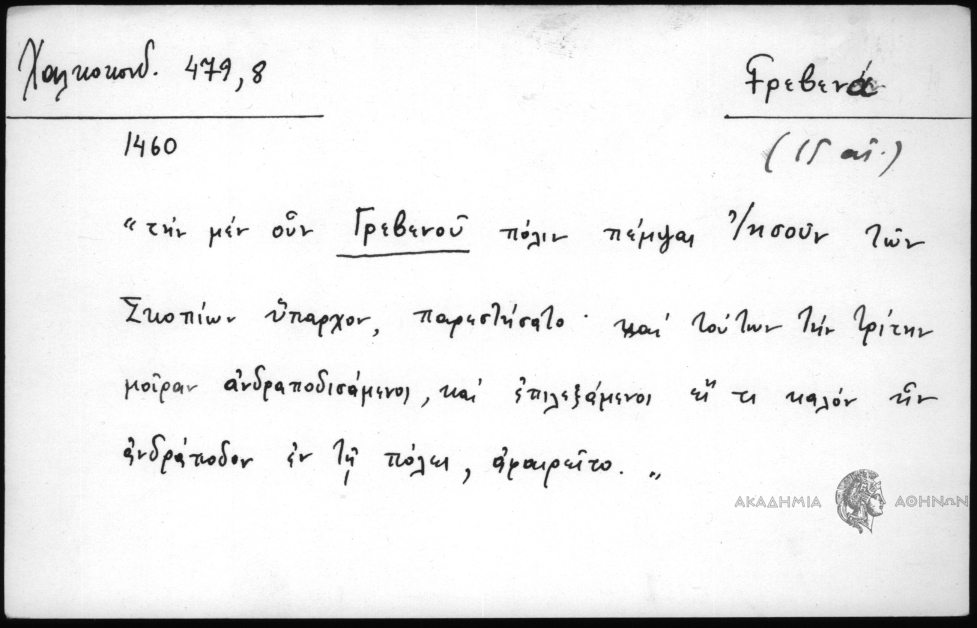 Χαλκοκονδ. 479,8
Γρεβενά
1460
(15 αἰ.)
“τὴν μὲν οὖν Γρεβενοῦ πόλιν πέμψαι Ἰησοῦν τῶν
Σκοπίων ὕπαρχον, παρεστήσατο· καὶ τούτων τὴν τρίτην
μοῖραν ἀνδραποδισάμενοι, καὶ ἐπιλεξάμενοι εἴ τι καλὸν ἦν
ἀνδράποδον ἐν τῇ πόλει, ἀφαιρεῖτο.„
ΑΚΑΔΗΜΙΑ ΑΘΗΝΩΝ